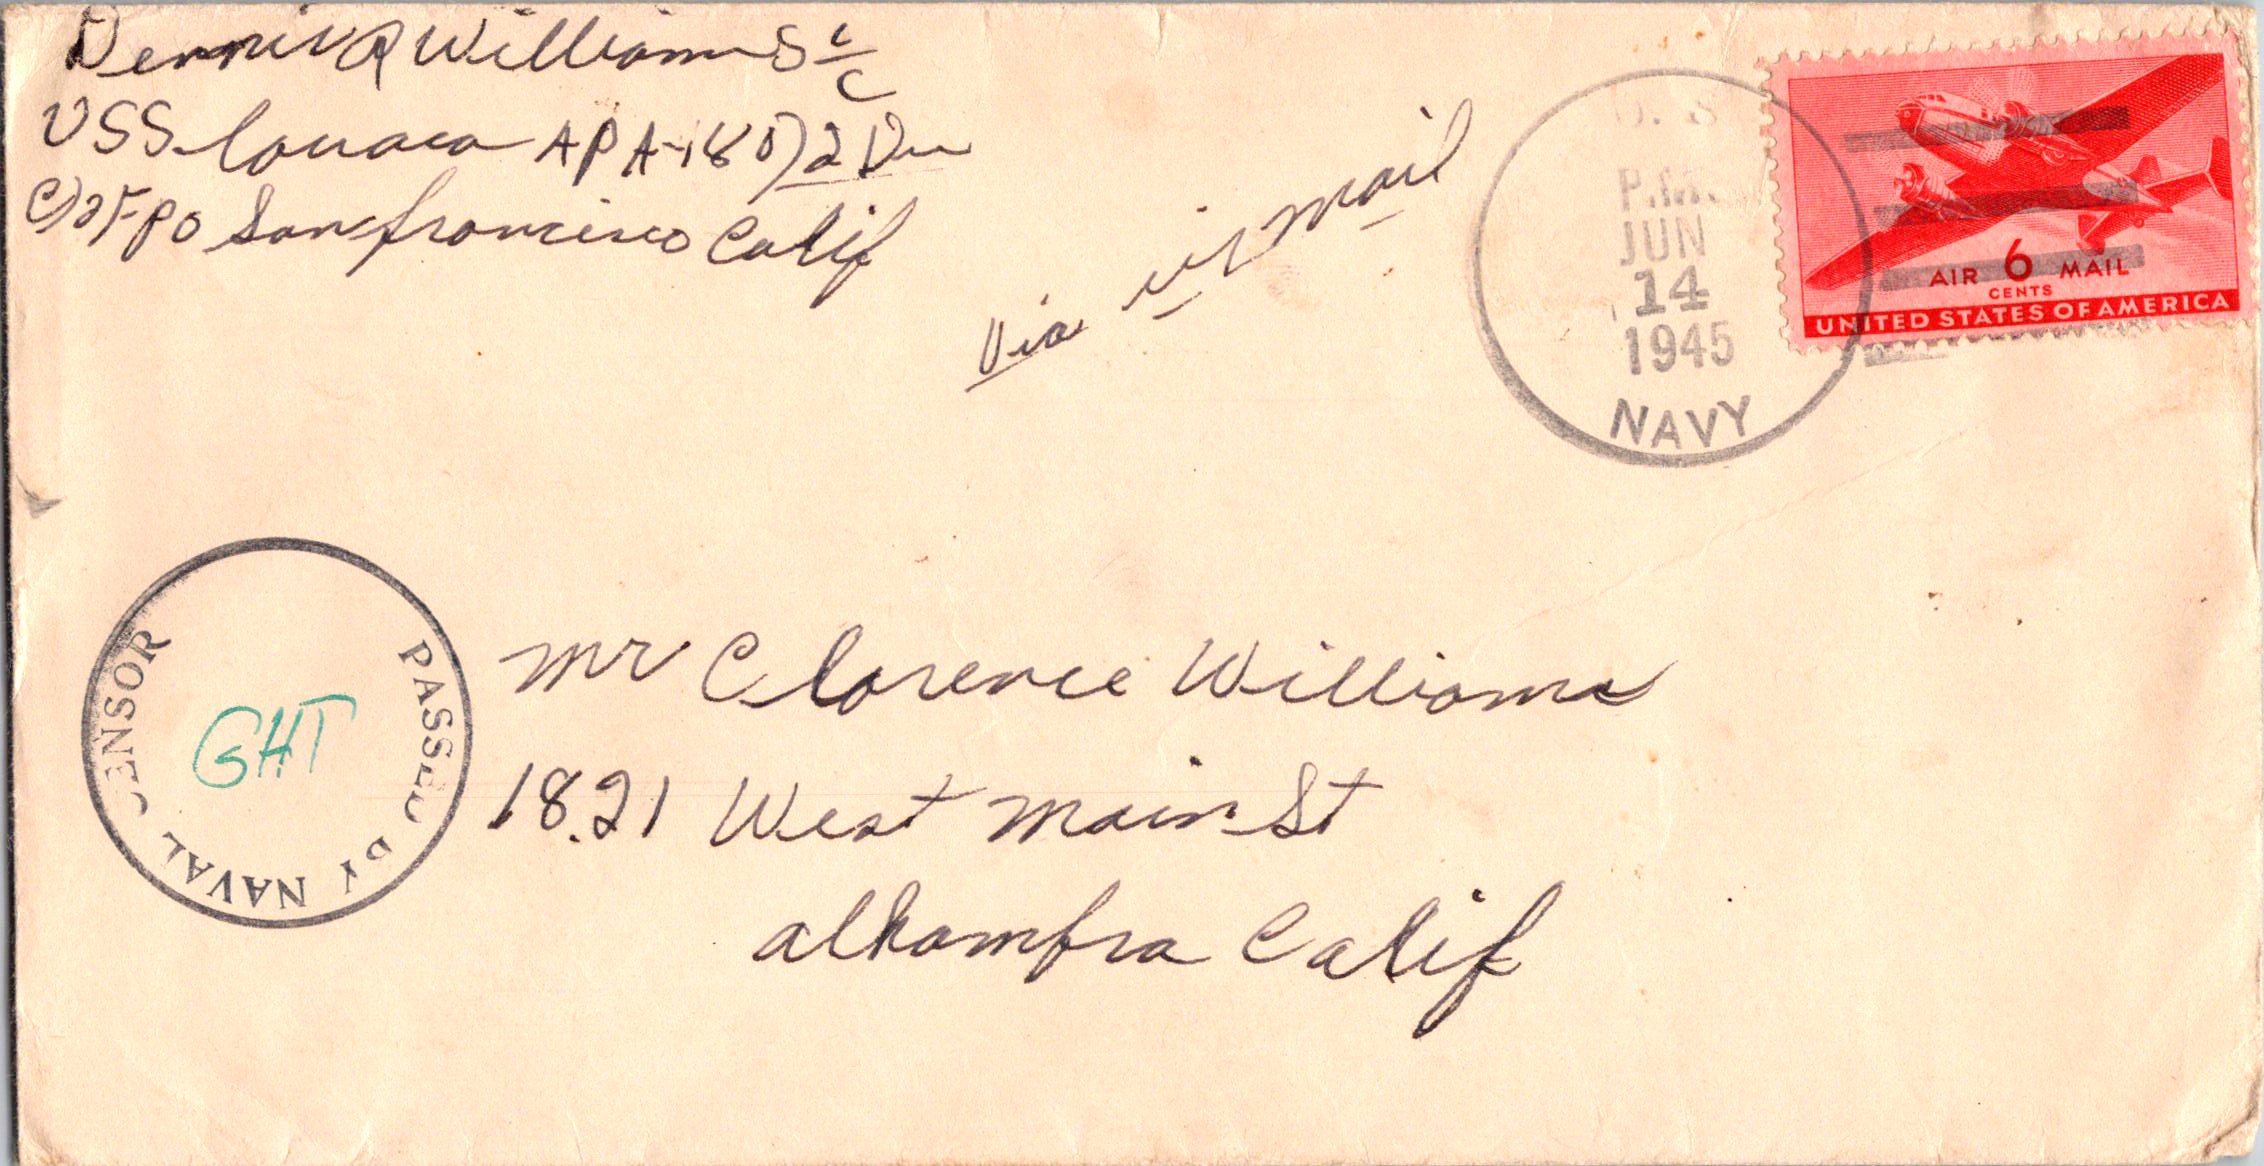 Dennis R Williams
USS Lavaca APA-180) 2 Div
c/o FPO San francisco Calif
Via air mail
U.S.
P.M.
JUN
14
1945
NAVY
AIR 6 MAIL
CENTS
UNITED STATES OF AMERICA
PASSED BY NAVAL CENSOR
GHT
Mr Clarence Williams
1821 West Main St
alhambra Calif